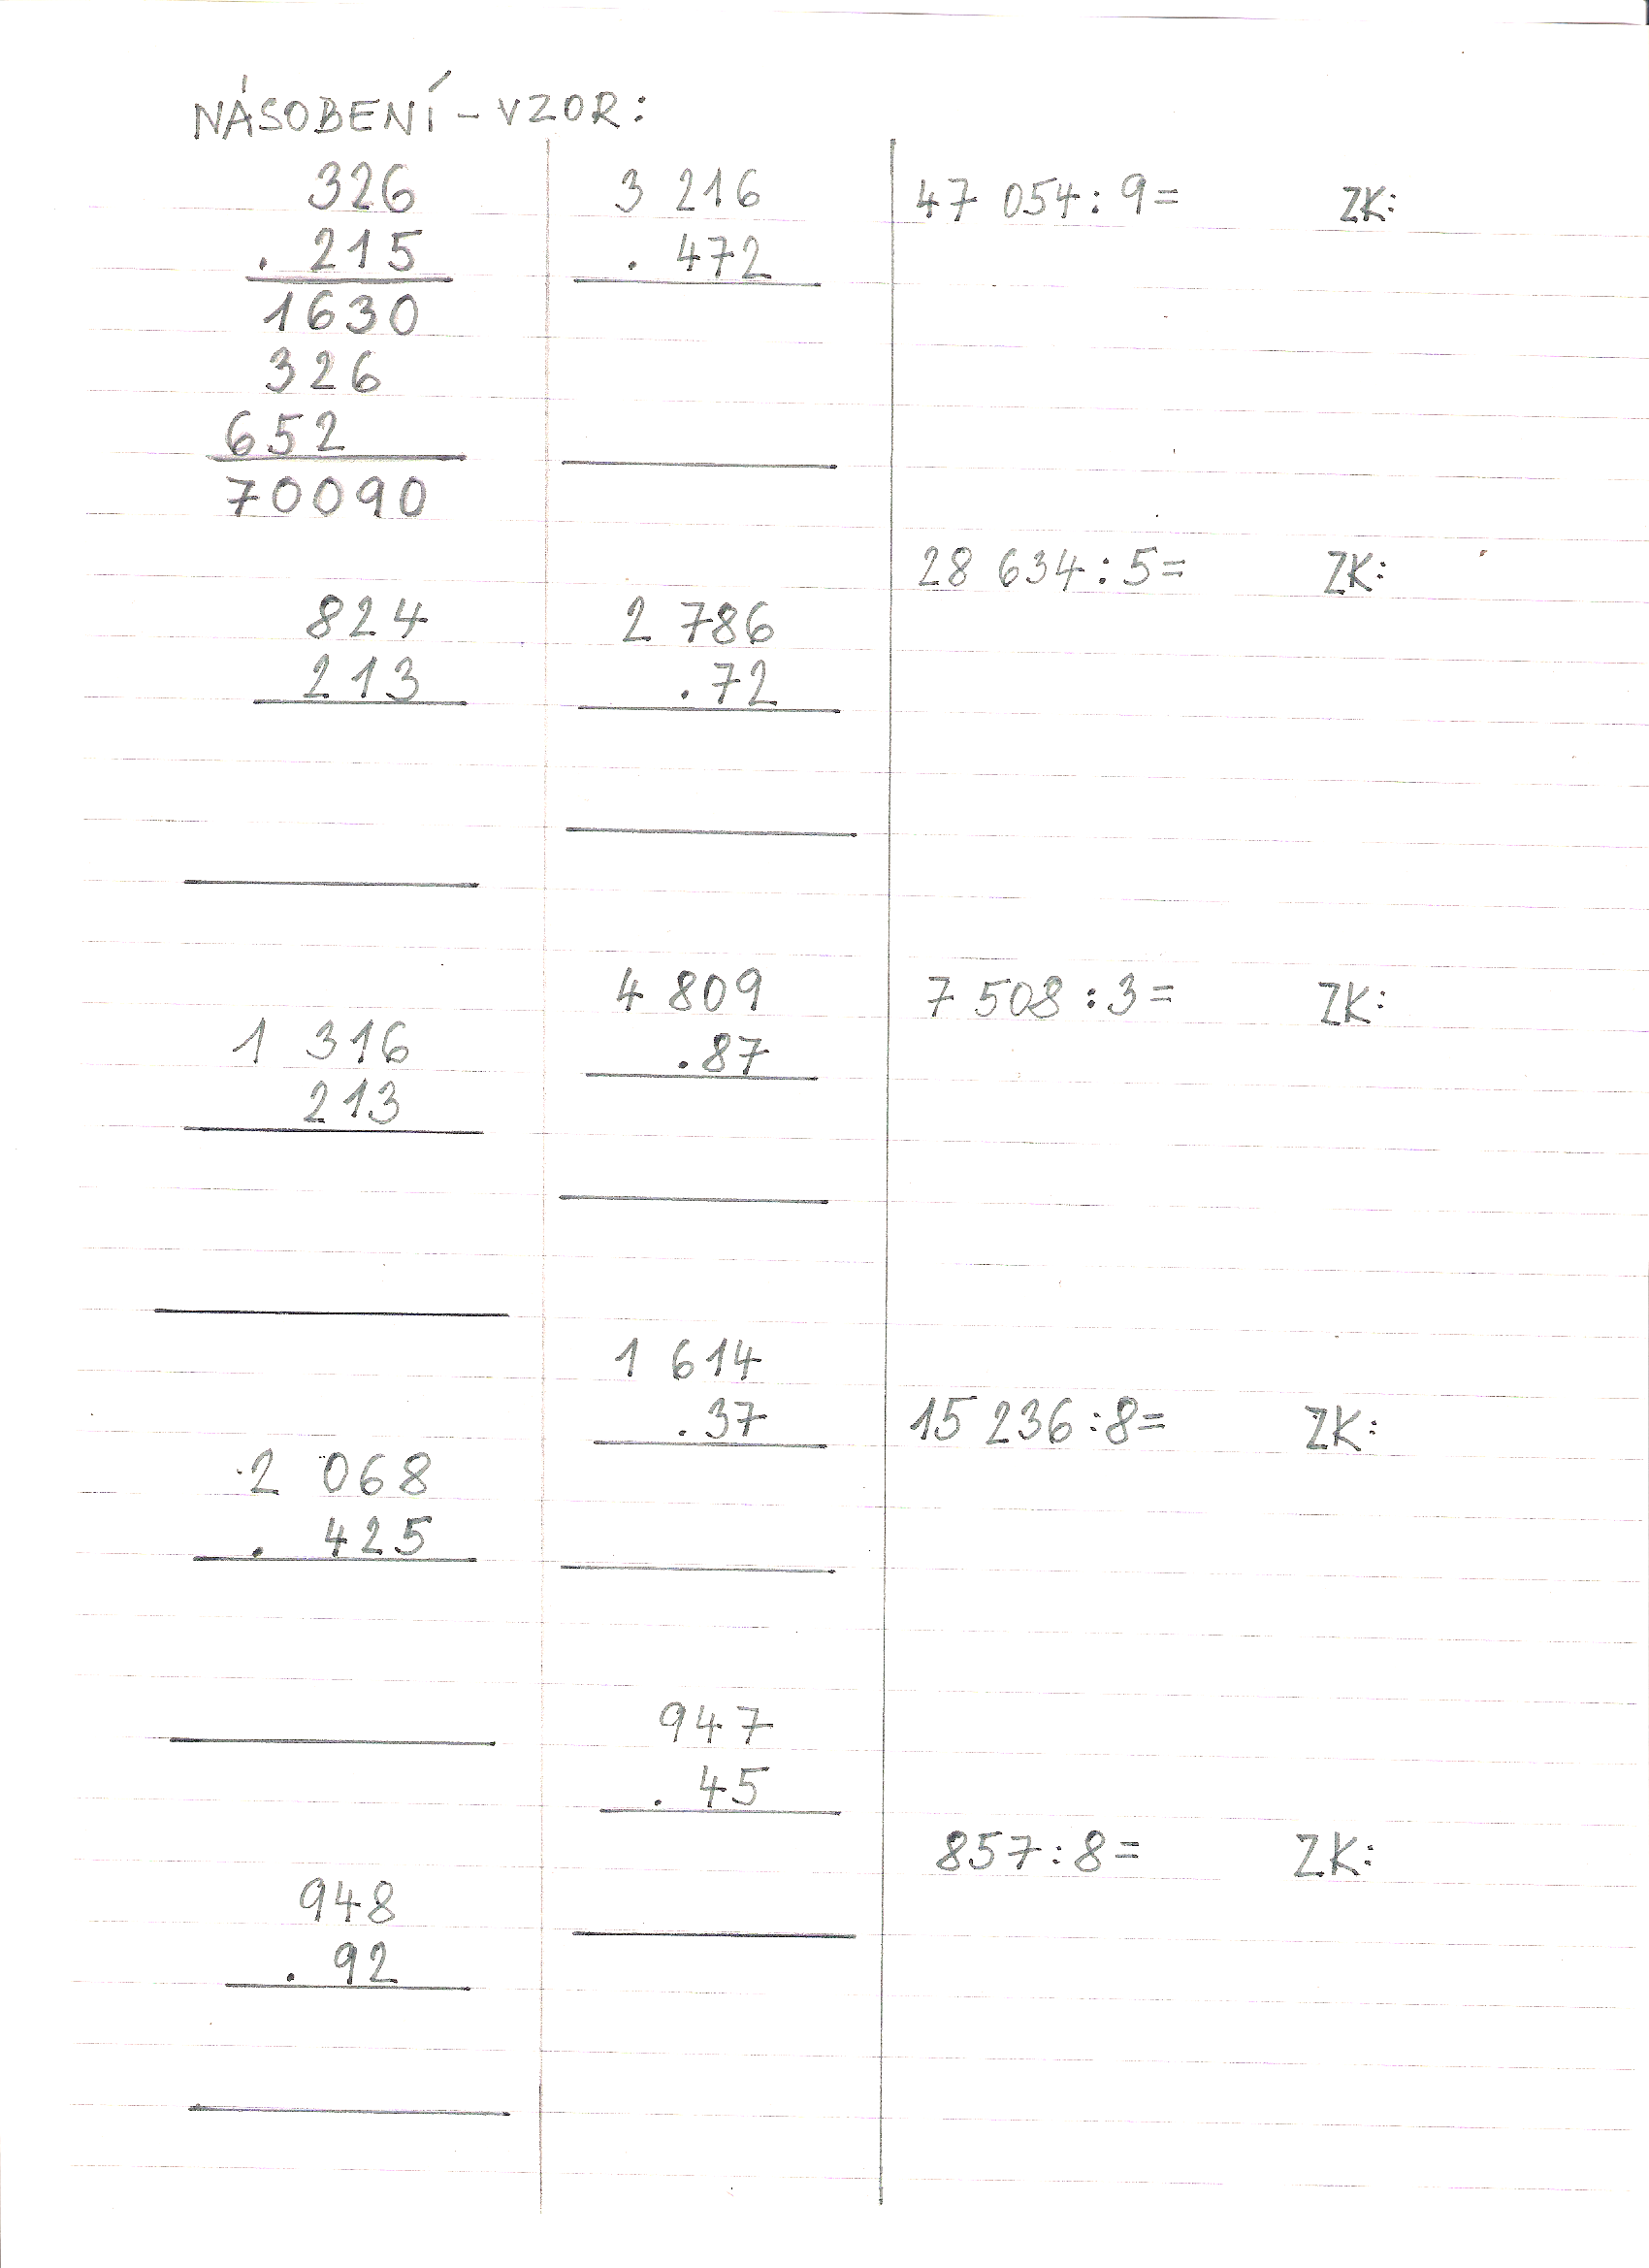 NÁSOBENÍ - VZOR:
326
. 215
1630
326
652
70090
824
213
1 316
213
2 068
. 425
948
. 92
3 216
. 472
2 786
. 72
4 809
. 87
1 614
. 37
947
. 45
47 054 : 9 = ZK:
28 634 : 5 = ZK:
7 508 : 3 = ZK:
15 236 : 8 = ZK:
857 : 8 = ZK: